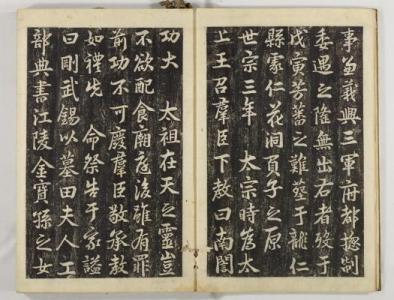 事並義興三軍府都摠制
委遇之隆無出右者歿于
戊寅芳蕃之難葬于龍仁
縣仁花洞負子之原
世宗三年 太宗時為太
上王召羣臣下敎曰南誾
功大 太祖在天之靈豈
不欲配食廟庭後雖有罪
前功不可廢羣臣敬承敎
如禮 命祭于家諡
曰剛武錫以墓田夫人工
部典書江陵金寶孫之女